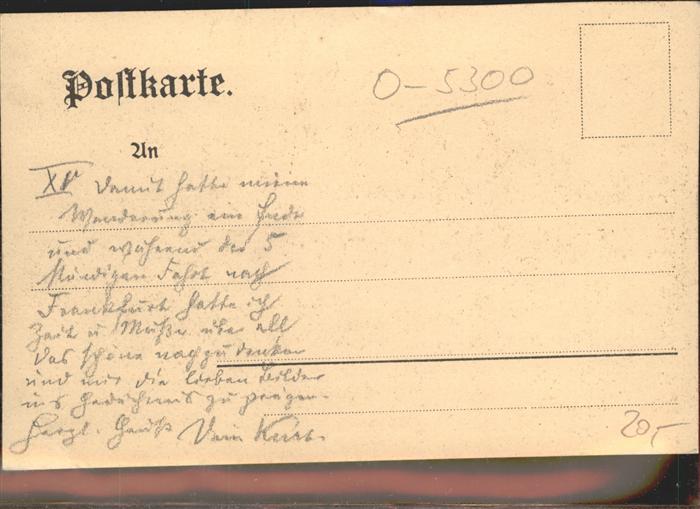 Postkarte.
O-5300
An
XV Damit hatte meine
Wanderung ein Ende
und während der 5
stündigen Fahrt nach
Frankfurt hatte ich
Zeit u. Muße über all
das schöne nachzudenken
und mir die lieben Bilder
ins Gedächtnis zu prägen.
Herzl. Gruß Dein Kurt.
20,-